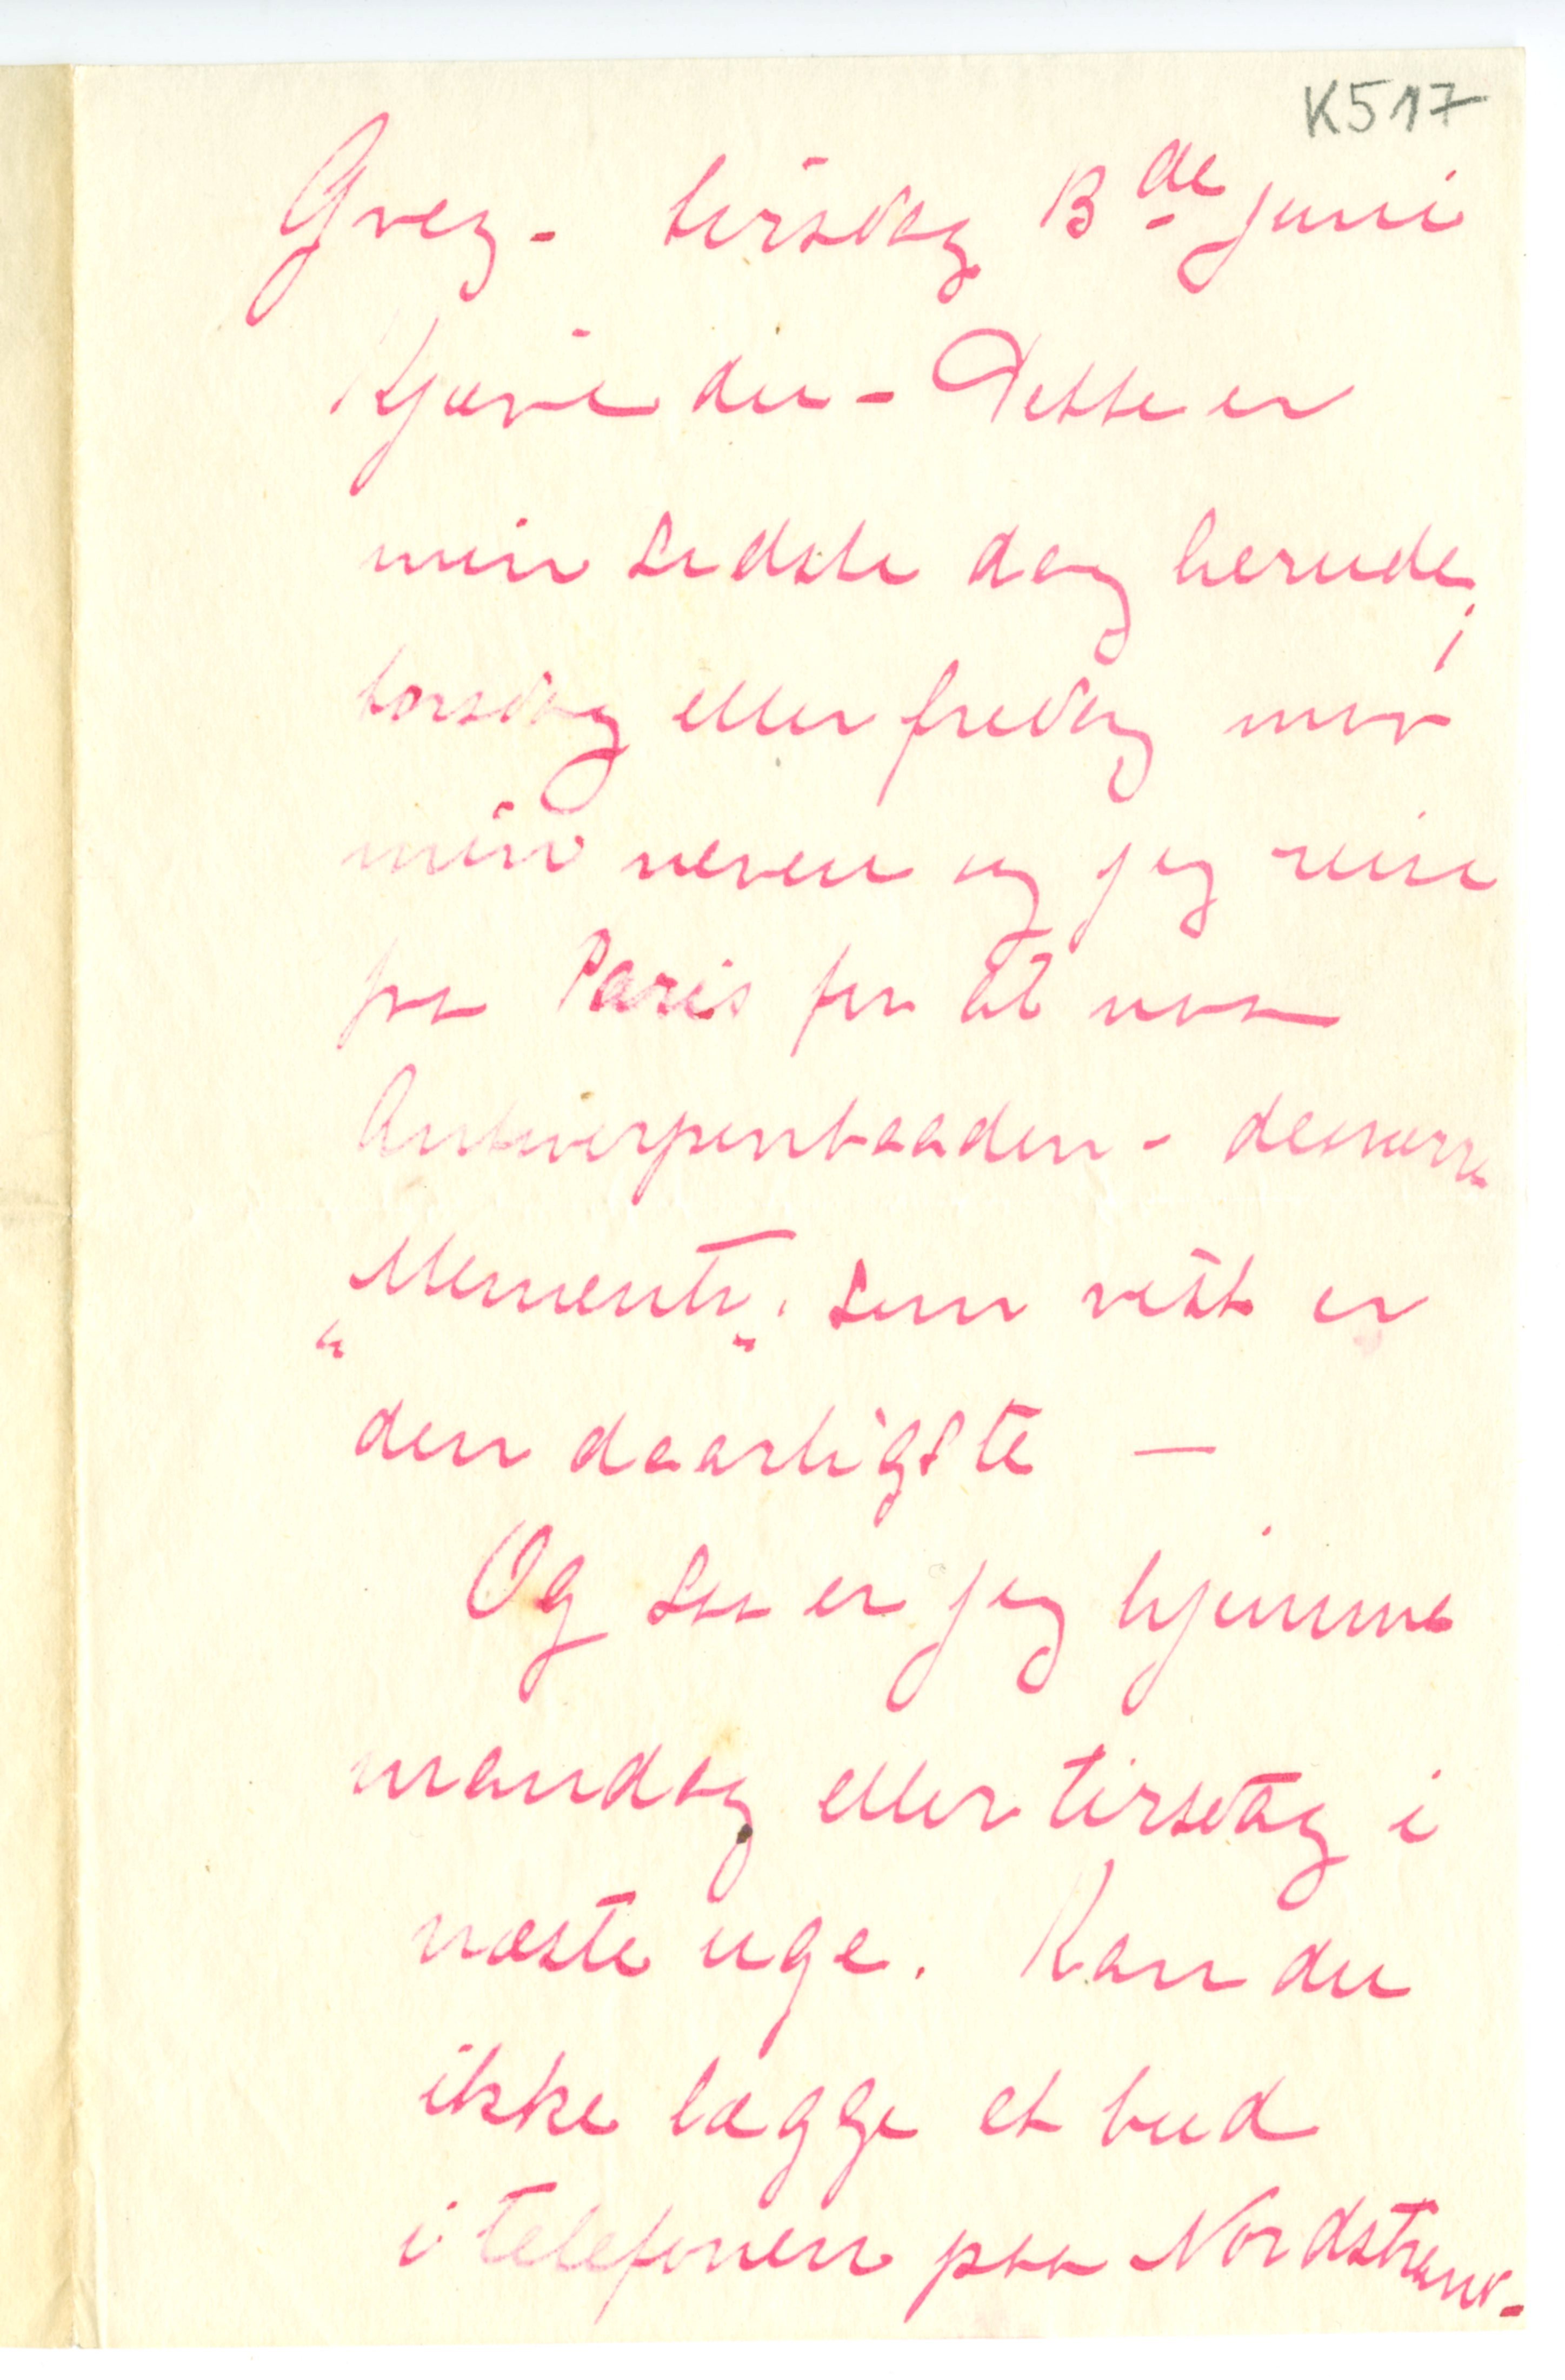 K517
Grez - tirsdag 13de juni
Kjære du - Dette er
min sidste dag herude;
torsdag eller fredag maa
min neveu og jeg reise
fra Paris for at naa
Antwerpenbaaden - desværre
„Memento“, som vist er
den daarligste —
Og saa er jeg hjemme
mandag eller tirsdag i
næste uge. Kan du
ikke lægge et bud
i telefonen paa Nordstrand -